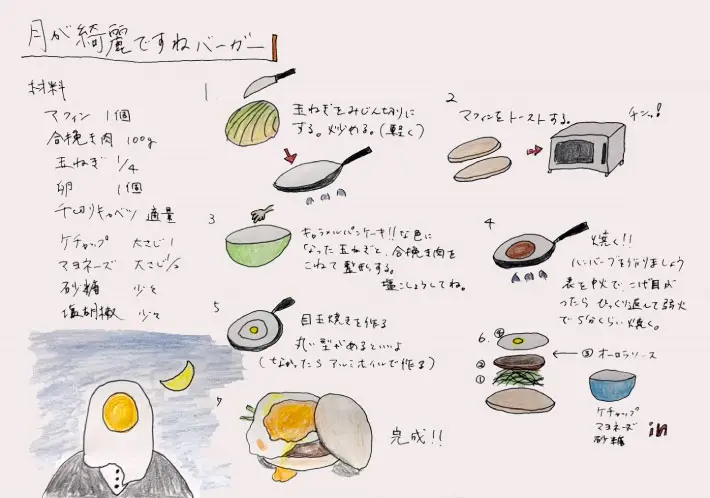 月が綺麗ですねバーガー
材料
マフィン 1個
合挽き肉 100g
玉ねぎ 1/4
卵 1個
千切りキャベツ 適量
ケチャップ 大さじ1
マヨネーズ 大さじ1/2
砂糖 少々
塩胡椒 少々
1
玉ねぎをみじん切りに
する。炒める。(軽く)
2
マフィンをトーストする。
チンッ!
3
キャラメルパンケーキ!!な色に
なった玉ねぎと、合挽き肉を
こねて整形する。
塩こしょうしてね。
4
焼く!!
ハンバーグを作りましょう
表を中火で、こげ目が
ついたら ひっくり返して弱火
で5分くらい焼く。
5
目玉焼きを作る
丸い型があるといいよ
(なかったらアルミホイルで作る)
6.
④
②
①
③ オーロラソース
ケチャップ
マヨネーズ
砂糖
in
7
完成!!